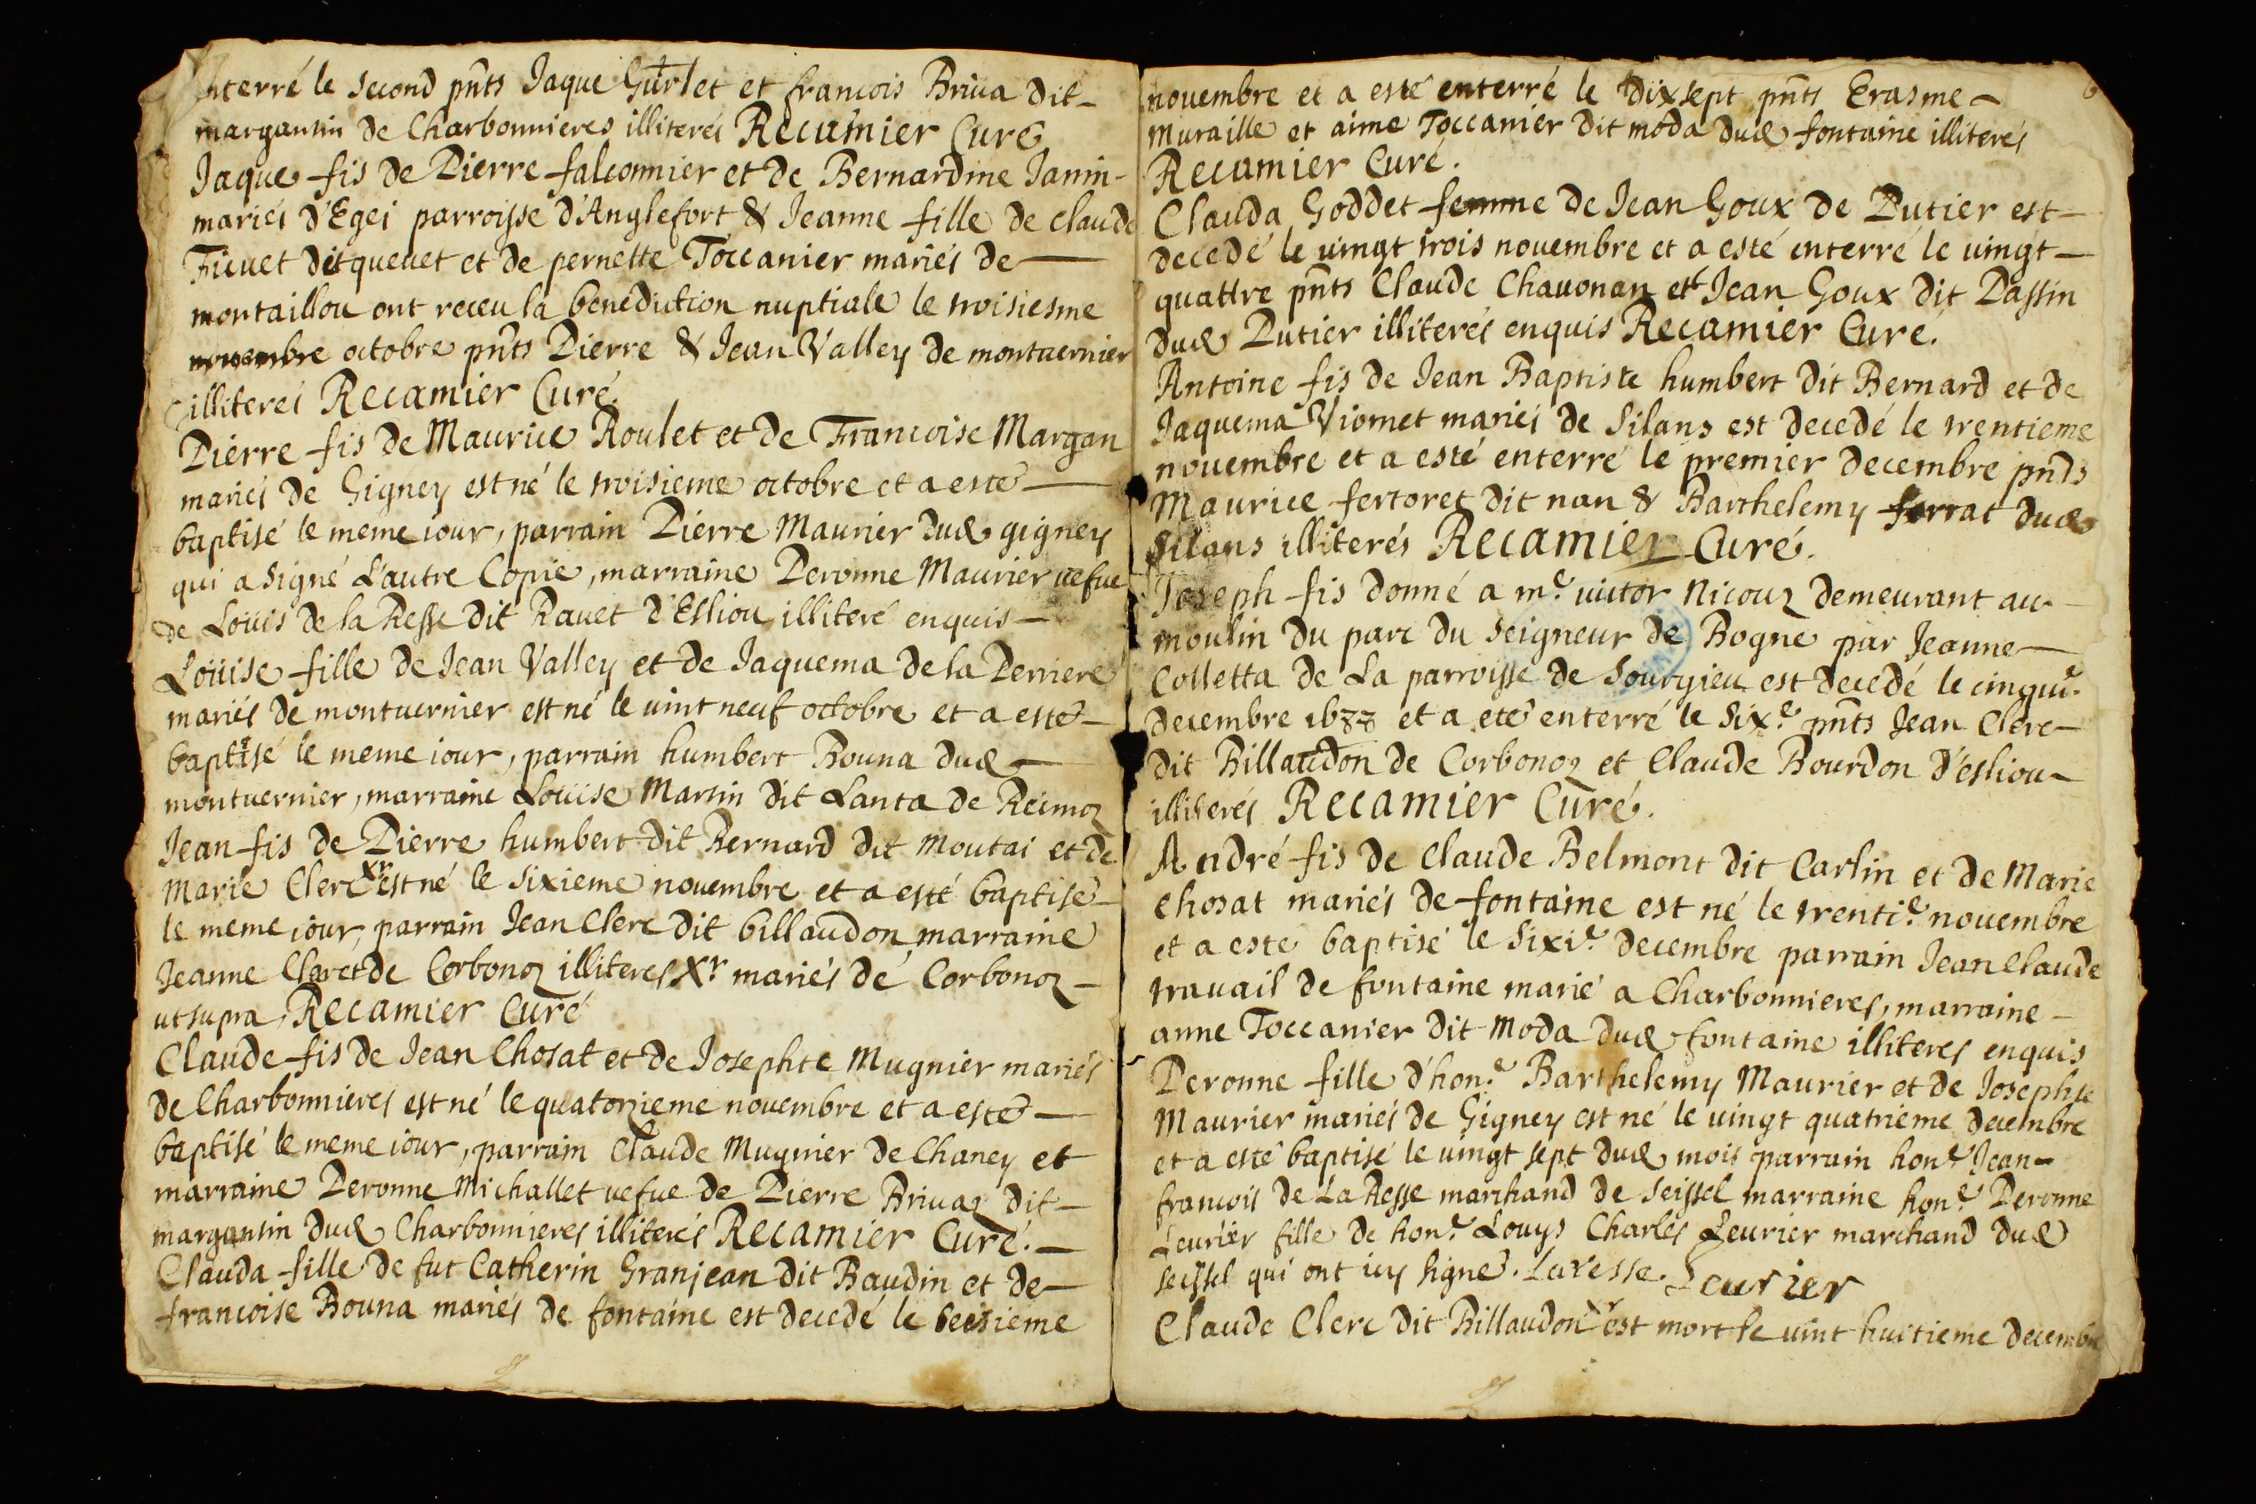 enterré le second pñts Jaque Gurlet et francois Briua dit
margantin de Charbonnieres illiterés Recamier Curé
Jaque fis de Pierre falconnier et de Bernardine Janin
mariés d'Egei parroisse d'Anglefort & Jeanne fille de claude
Fiuuet dit queuet et de pernette Toccanier mariés de
montaillou ont receu la benediction nuptiale le troisiesme
novembre octobre pñts Pierre & Jean Valley de montuernier
illiterés Recamier Curé.
Pierre fis de Maurice Roulet et de Francoise Margan
mariés de Gigney est né le troisieme octobre et a esté
baptisé le meme iour, parrain Pierre Maurier dud gigney
qui a signé L'autre Copie, marraine Peronne Maurier uefue
de Loüis de la Resse dit Rauet d'Esliou illiteré enquis
Loüise fille de Jean Valley et de Jaquema de la Perriere
mariés de montuernier est né le uint neuf octobre et a esté
baptisé le meme iour, parrain humbert Bouna dud
montuernier, marraine Loüise Martin dit Lanta de Reimoz
Jean fis de Pierre humbert dit Bernard dit Moutai et de
Marie Clerc Xr est né le sixieme nouembre et a esté baptisé
le meme iour, parrain Jean Clerc dit billaudon marraine
Jeanne Clerc et de Corbonoz illiteres Xr mariés de Corbonoz
ut supra, Recamier Curé
Claude fis de Jean Chosat et de Josephte Mugnier mariés
de Charbonnieres est né le quatorzieme nouembre et a esté
baptisé le meme iour, parrain Claude Mugnier de Chaney et
marraine Peronne Michallet uefue de Pierre Briuaz dit
margantin dud Charbonnieres illiterés Recamier Curé.
Clauda fille de fut Catherin Granjean dit Baudin et de
francoise Bouna mariés de fontaine est decedé le seisieme
nouembre et a esté enterré le dixsept pñts Erasme
Muraille et aime Toccanier dit moda dud fontaine illiterés
Recamier Curé.
Clauda Goddet femme de Jean Goux de Putier est
decedé le uingt trois nouembre et a esté enterré le uingt
quattre pñts Claude Chauonan et Jean Goux dit Passin
dud Putier illiterés enquis Recamier Curé.
Antoine fis de Jean Baptiste humbert dit Bernard et de
Jaquema Viomet mariés de Silans est decedé le trentieme
nouembre et a esté enterré le premier decembre pñts
Maurice fertoret dit nan & Barthelemy ferrat dud
Silans illiterés Recamier Curé.
Joseph fis donné a mᵉ uictor Nicouz demeurant au
moulin du parc du seigneur de Bogne par Jeanne
Colletta de La parroisse de Souryieu est decedé le cinquiᵉ
decembre 1688 et a eté enterré le sixᵉ pñts Jean Clerc
dit Billaudon de Corbonoz et Claude Bourdon d'esliou
illiterés Recamier Curé.
André fis de Claude Belmont dit Carlin et de Marie
Chosat mariés de fontaine est né le trentiᵉ nouembre
et a esté baptisé le sixiᵉ decembre parrain Jean Claude
trauail de fontaine marié a Charbonnieres, marraine
anne Toccanier dit Moda dud fontaine illiteres enquis
Peronne fille d'honᵉ Barthelemy Maurier et de Josephte
Maurier mariés de Gigney est né le uingt quatrieme decembre
et a esté baptisé le uingt sept dud mois parrain honᵉ Jean
francois de La Resse marchand de seissel marraine honᵉ Peronne
Leurier fille de honᵉ Louys Charles Leurier marchand dud
seissel qui ont icy signé. Laresse. Leurier
Claude Clerc dit Billaudon Xr est mort le uint huitieme decembre